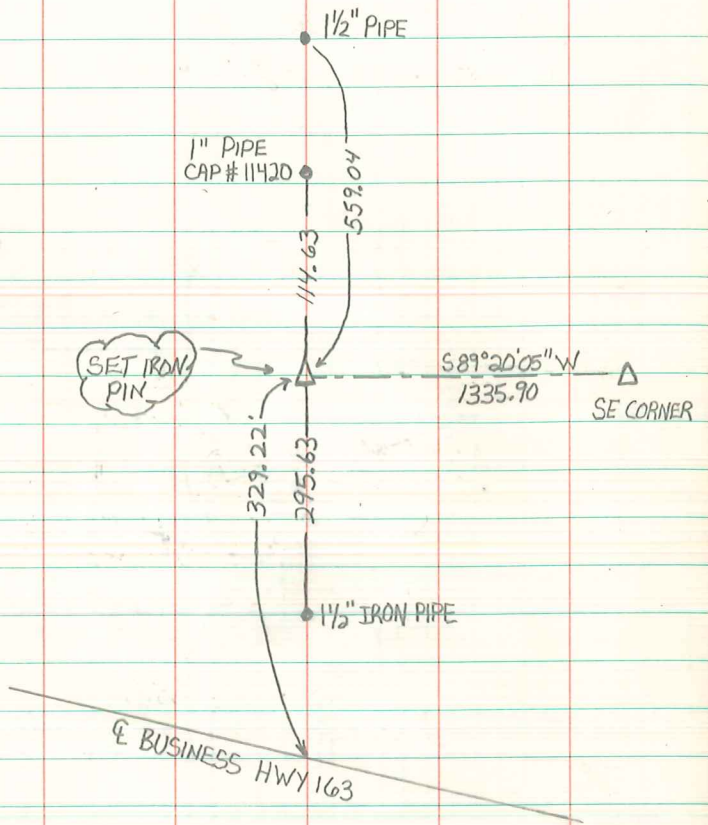 1½" PIPE
1" PIPE
CAP # 11420
559.04
114.63
SET IRON
PIN
S89°20'05"W
1335.90
SE CORNER
329.22'
295.63
1½" IRON PIPE
℄ BUSINESS HWY 163